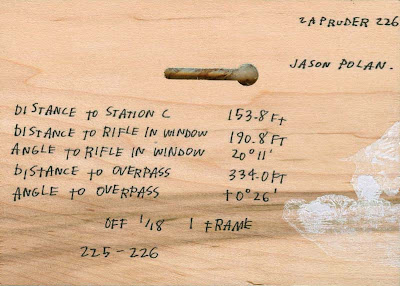 ZAPRUDER 226
JASON POLAN.
DISTANCE TO STATION C 153.8 FT
DISTANCE TO RIFLE IN WINDOW 190.8 FT
ANGLE TO RIFLE IN WINDOW 20° 11'
DISTANCE TO OVERPASS 334.0 FT
ANGLE TO OVERPASS +0° 26'
OFF 1/18 1 FRAME
225-226